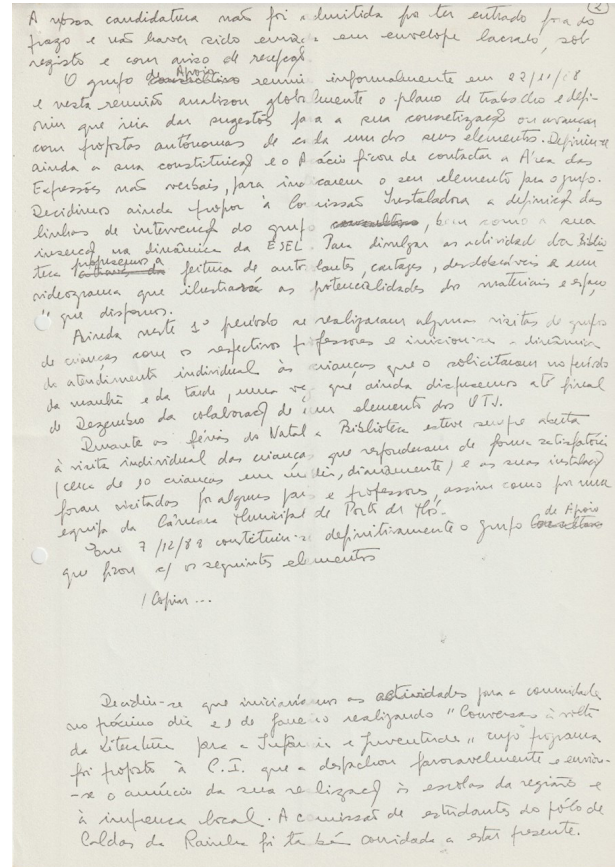 2
A nossa candidatura não foi admitida por ter entrado fora do
prazo e não haver sido enviada em envelope lacrado, sob
registo e com aviso de recepção.
O grupo consultivo de Apoio reuniu informalmente em 22/11/88
e nesta reunião analizou globalmente o plano de trabalho e defi-
niu que iria dar sugestões para a sua concretização ou avançar
com propostas autónomas de cada um dos seus elementos. Definiu-se
ainda a sua constituição e o Acácio ficou de contactar a Área das
Expressões não verbais, para indicarem o seu elemento para o grupo.
Decidimos ainda propor à Comissão Instaladora a definição das
linhas de intervenção do grupo consultivo, bem como a sua
inserção na dinâmica da ESEL. Para divulgar as actividades da Biblio
teca propusemos a feitura de autocolantes, cartazes, desdobráveis e um
videograma que ilustrará as potencialidades dos materiais e espaço
que dispomos.
Ainda neste 1º período se realizaram algumas visitas de grupos
de crianças com os respectivos professores e iniciou-se a dinâmica
de atendimento individual às crianças que o solicitaram no período
da manhã e da tarde, uma vez que ainda dispusemos até final
de Dezembro da colaboração de um elemento dos OTJ.
Durante as férias do Natal a Biblioteca esteve sempre aberta
à visita individual das crianças que responderam de forma satisfatória
(cerca de 10 crianças em média, diariamente) e as suas instalações
foram visitadas por alguns pais e professores, assim como por uma
equipa da Câmara Municipal de Porto de Mós.
Em 7/12/88 constituiu-se definitivamente o grupo Consultivo de Apoio
que ficou c/ os seguintes elementos
/Copiar ...
Decidiu-se que iniciaríamos as actividades para a comunidade
no próximo dia 21 de Janeiro realizando "Conversas à volta
da Literatura para a Infância e Juventude" cujo programa
foi proposto à C.I. que a despachou favoravelmente e enviou-
-se o anúncio da sua realização às escolas da região e
à imprensa local. A comissão de estudantes do pólo de
Caldas da Rainha foi também convidada a estar presente.